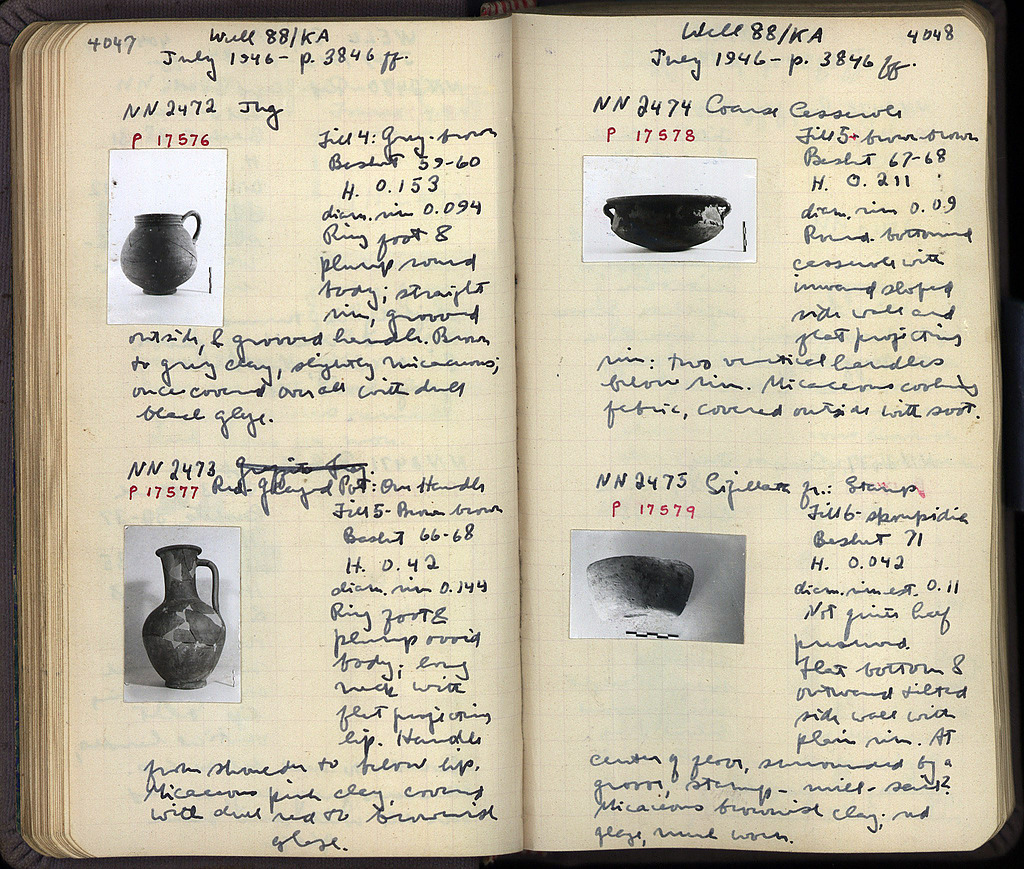 4047
Well 88/KA
July 1946 - p. 3846 ff.
NN 2472 Jug
P 17576
Fill 4: Gray-brown
Basket 59-60
H. 0.153
diam. rim 0.094
Ring foot &
plump round
body; straight
rim, grooved
outside, & grooved handle. Brown
to gray clay, slightly micaceous;
once covered over all with dull
black glaze.
NN 2473
P 17577 Red-Glazed Pot: One Handle
Fill 5 - Brown brown
Basket 66-68
H. 0.42
diam. rim 0.144
Ring foot &
plump ovoid
body; long
neck with
flat projecting
lip. Handle
from shoulder to below lip.
Micaceous pink clay, covered
with dull red to brownish
glaze.
Well 88/KA
4048
July 1946 - p. 3846 ff.
NN 2474 Coarse Casserole
P 17578
Fill 5 - brown-brown
Basket 67-68
H. 0.211
diam. rim 0.09
Round-bottomed
casserole with
inward sloped
side wall and
flat projecting
rim: two vertical handles
below rim. Micaceous cooking
fabric, covered outside with soot.
NN 2475 Sigillata fr.: Stamp
P 17579
Fill 6 -
Basket 71
H. 0.042
diam. rim est. 0.11
Not quite half
preserved.
Flat bottom &
outward tilted
side wall with
plain rim. At
center of floor, surrounded by a
groove, stamp -
Micaceous brownish clay; red
glaze, much worn.